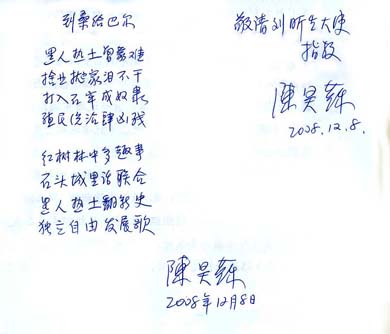 到桑给巴尔
黑人热土曾蒙难
捨业抛家泪不干
打入石牢成奴隶
殖民统治肆凶残
红树林中多趣事
石头城里话联合
黑人热土翻新史
独立自由发展歌
陳昊蘇
2008年12月8日
敬请刘昕生大使
指教
陳昊蘇
2008.12.8.